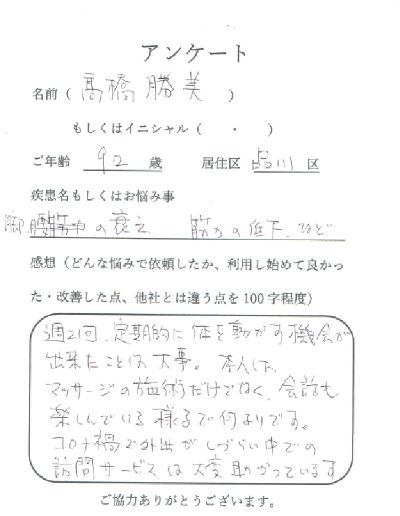 アンケート
名前（ 髙橋 勝美 ）
もしくはイニシャル（ ・ ）
ご年齢 92 歳 居住区 品川 区
疾患名もしくはお悩み事
脚、腰 の衰え、筋力の低下、など
感想（どんな悩みで依頼したか、利用し始めて良かっ
た・改善した点、他社とは違う点を100字程度）
週2回、定期的に体を動かす機会が
出来たことは大事。本人は、
マッサージの施術だけでなく、会話も
楽しんでいる様子で何よりです。
コロナ禍で外出がしづらい中での
訪問サービスは大変助かっています
ご協力ありがとうございます。